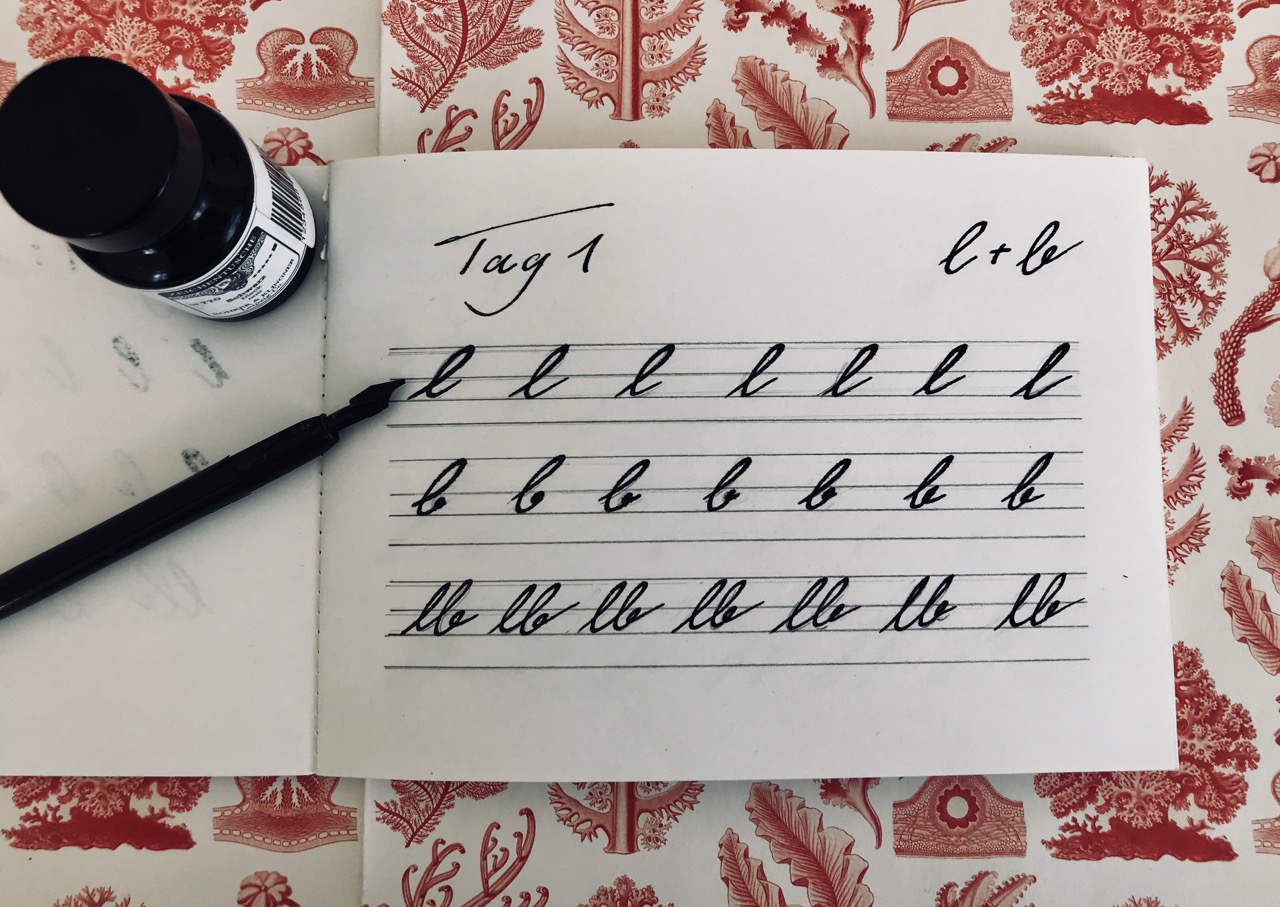 Tag 1
l + b
l l l l l l l
b b b b b b b
lb lb lb lb lb lb lb
ZEICHENTUSCHE
Schwarz